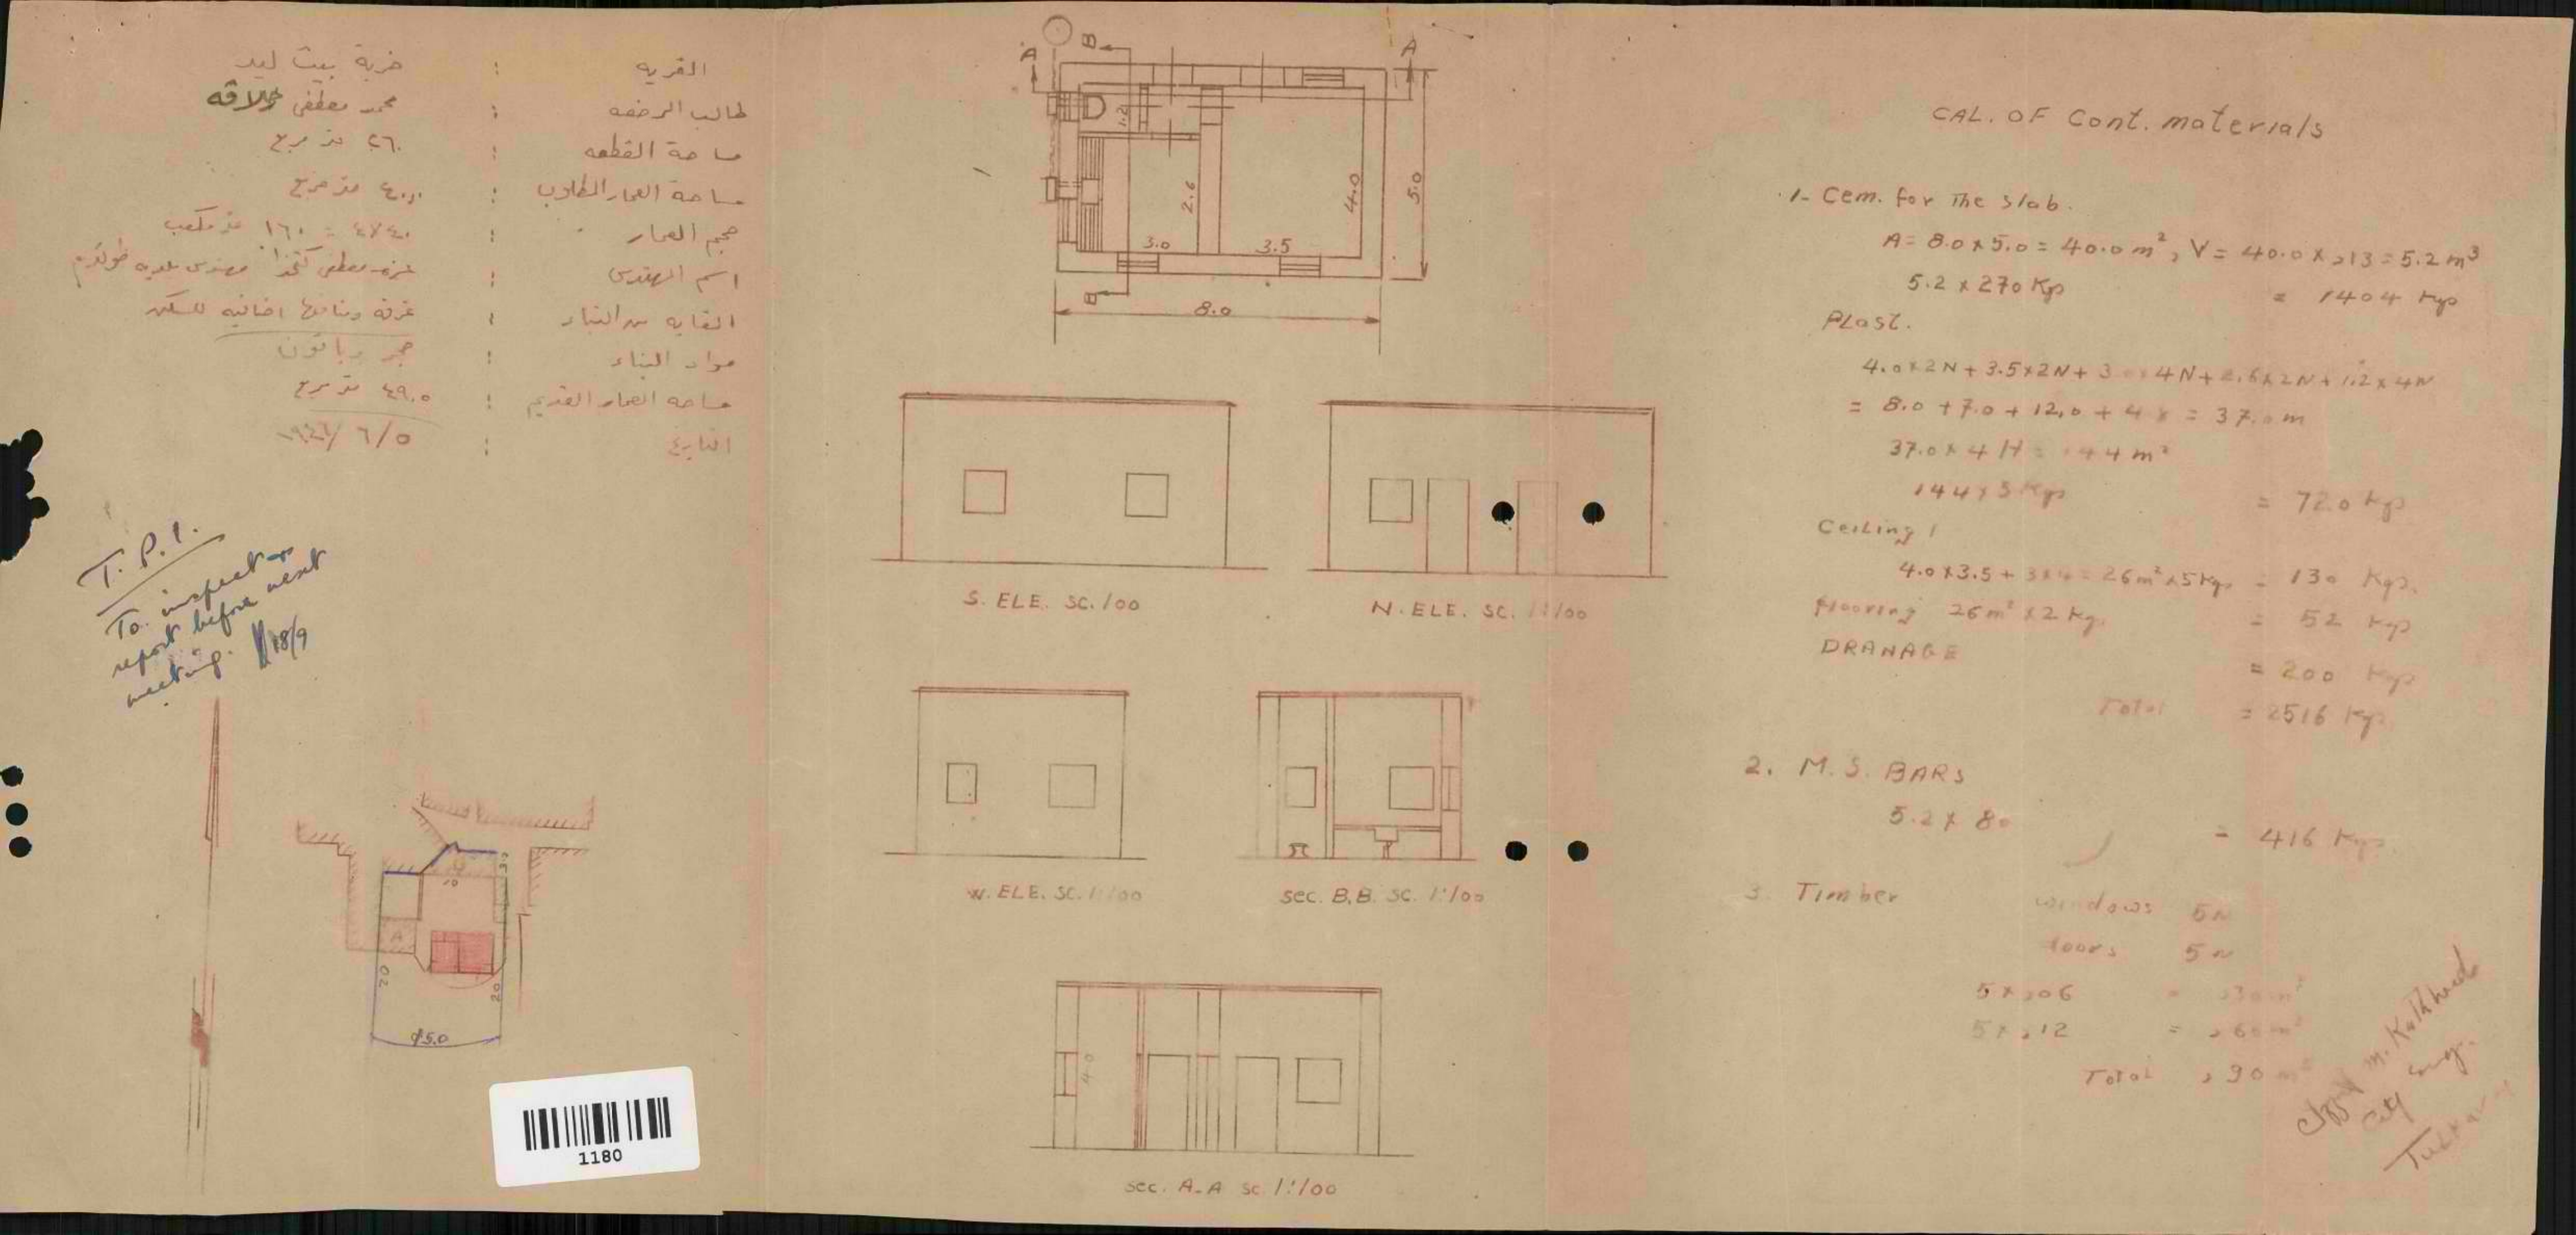 القريه : خربة بيت ليد
طالب الرخصه : محمد مصطفى
مساحة القطعه : ٢٦٠ متر مربع
مساحة العمار المطلوب : ٤٠٫٠ متر مربع
حجم العمار : ٤٠×٤ = ١٦٠ متر مكعب
اسم المهندس : عزت مصطفى كتخدا مهندس بلديه طولكرم
الغايه من البناء : غرفة ومنافعها اضافيه للسكن
مواد البناء : حجر وباتون
مساحه العمار القديم : ٤٩٫٠ متر مربع
التاريخ : ٥/٦/
T. P. I.
To inspect &
report before next
meeting. 18/9
10
3.0
A
20
20
15.0
1180
A
B
A
1.2
2.6
4.0
5.0
3.0
3.5
B
8.0
S. ELE. SC. 100
N. ELE. SC. 1:100
W. ELE. SC. 1:100
sec. B.B. SC. 1:100
4.0
sec. A-A SC 1:100
CAL. OF Cont. materials
1- Cem. for The slab.
A = 8.0 x 5.0 = 40.0 m², V = 40.0 x ,13 = 5.2 m³
5.2 x 270 Kgs = 1404 Kgs
PLast.
4.0x2N + 3.5x2N + 3.0x4N + 2.6x2N + 1.2x4N
= 8.0 + 7.0 + 12.0 + = 37.0 m
37.0 x 4 H = 144 m²
144 x 5 Kgs = 720 Kgs
Ceiling
4.0x3.5 + 3x4 = 26m² x 5 Kgs = 130 Kgs.
flooring 26m² x 2 Kgs = 52 Kgs
DRANAGE = 200 Kgs
Total = 2516 Kgs
2. M. S. BARS
5.2 x 80 = 416 Kgs.
3. Timber windows 5N
doors 5N
5 x ,06 = ,30 m³
5 x ,12 = ,60 m³
Total ,90 m³
m. Katkhuda
City Eng.
Tulkarm